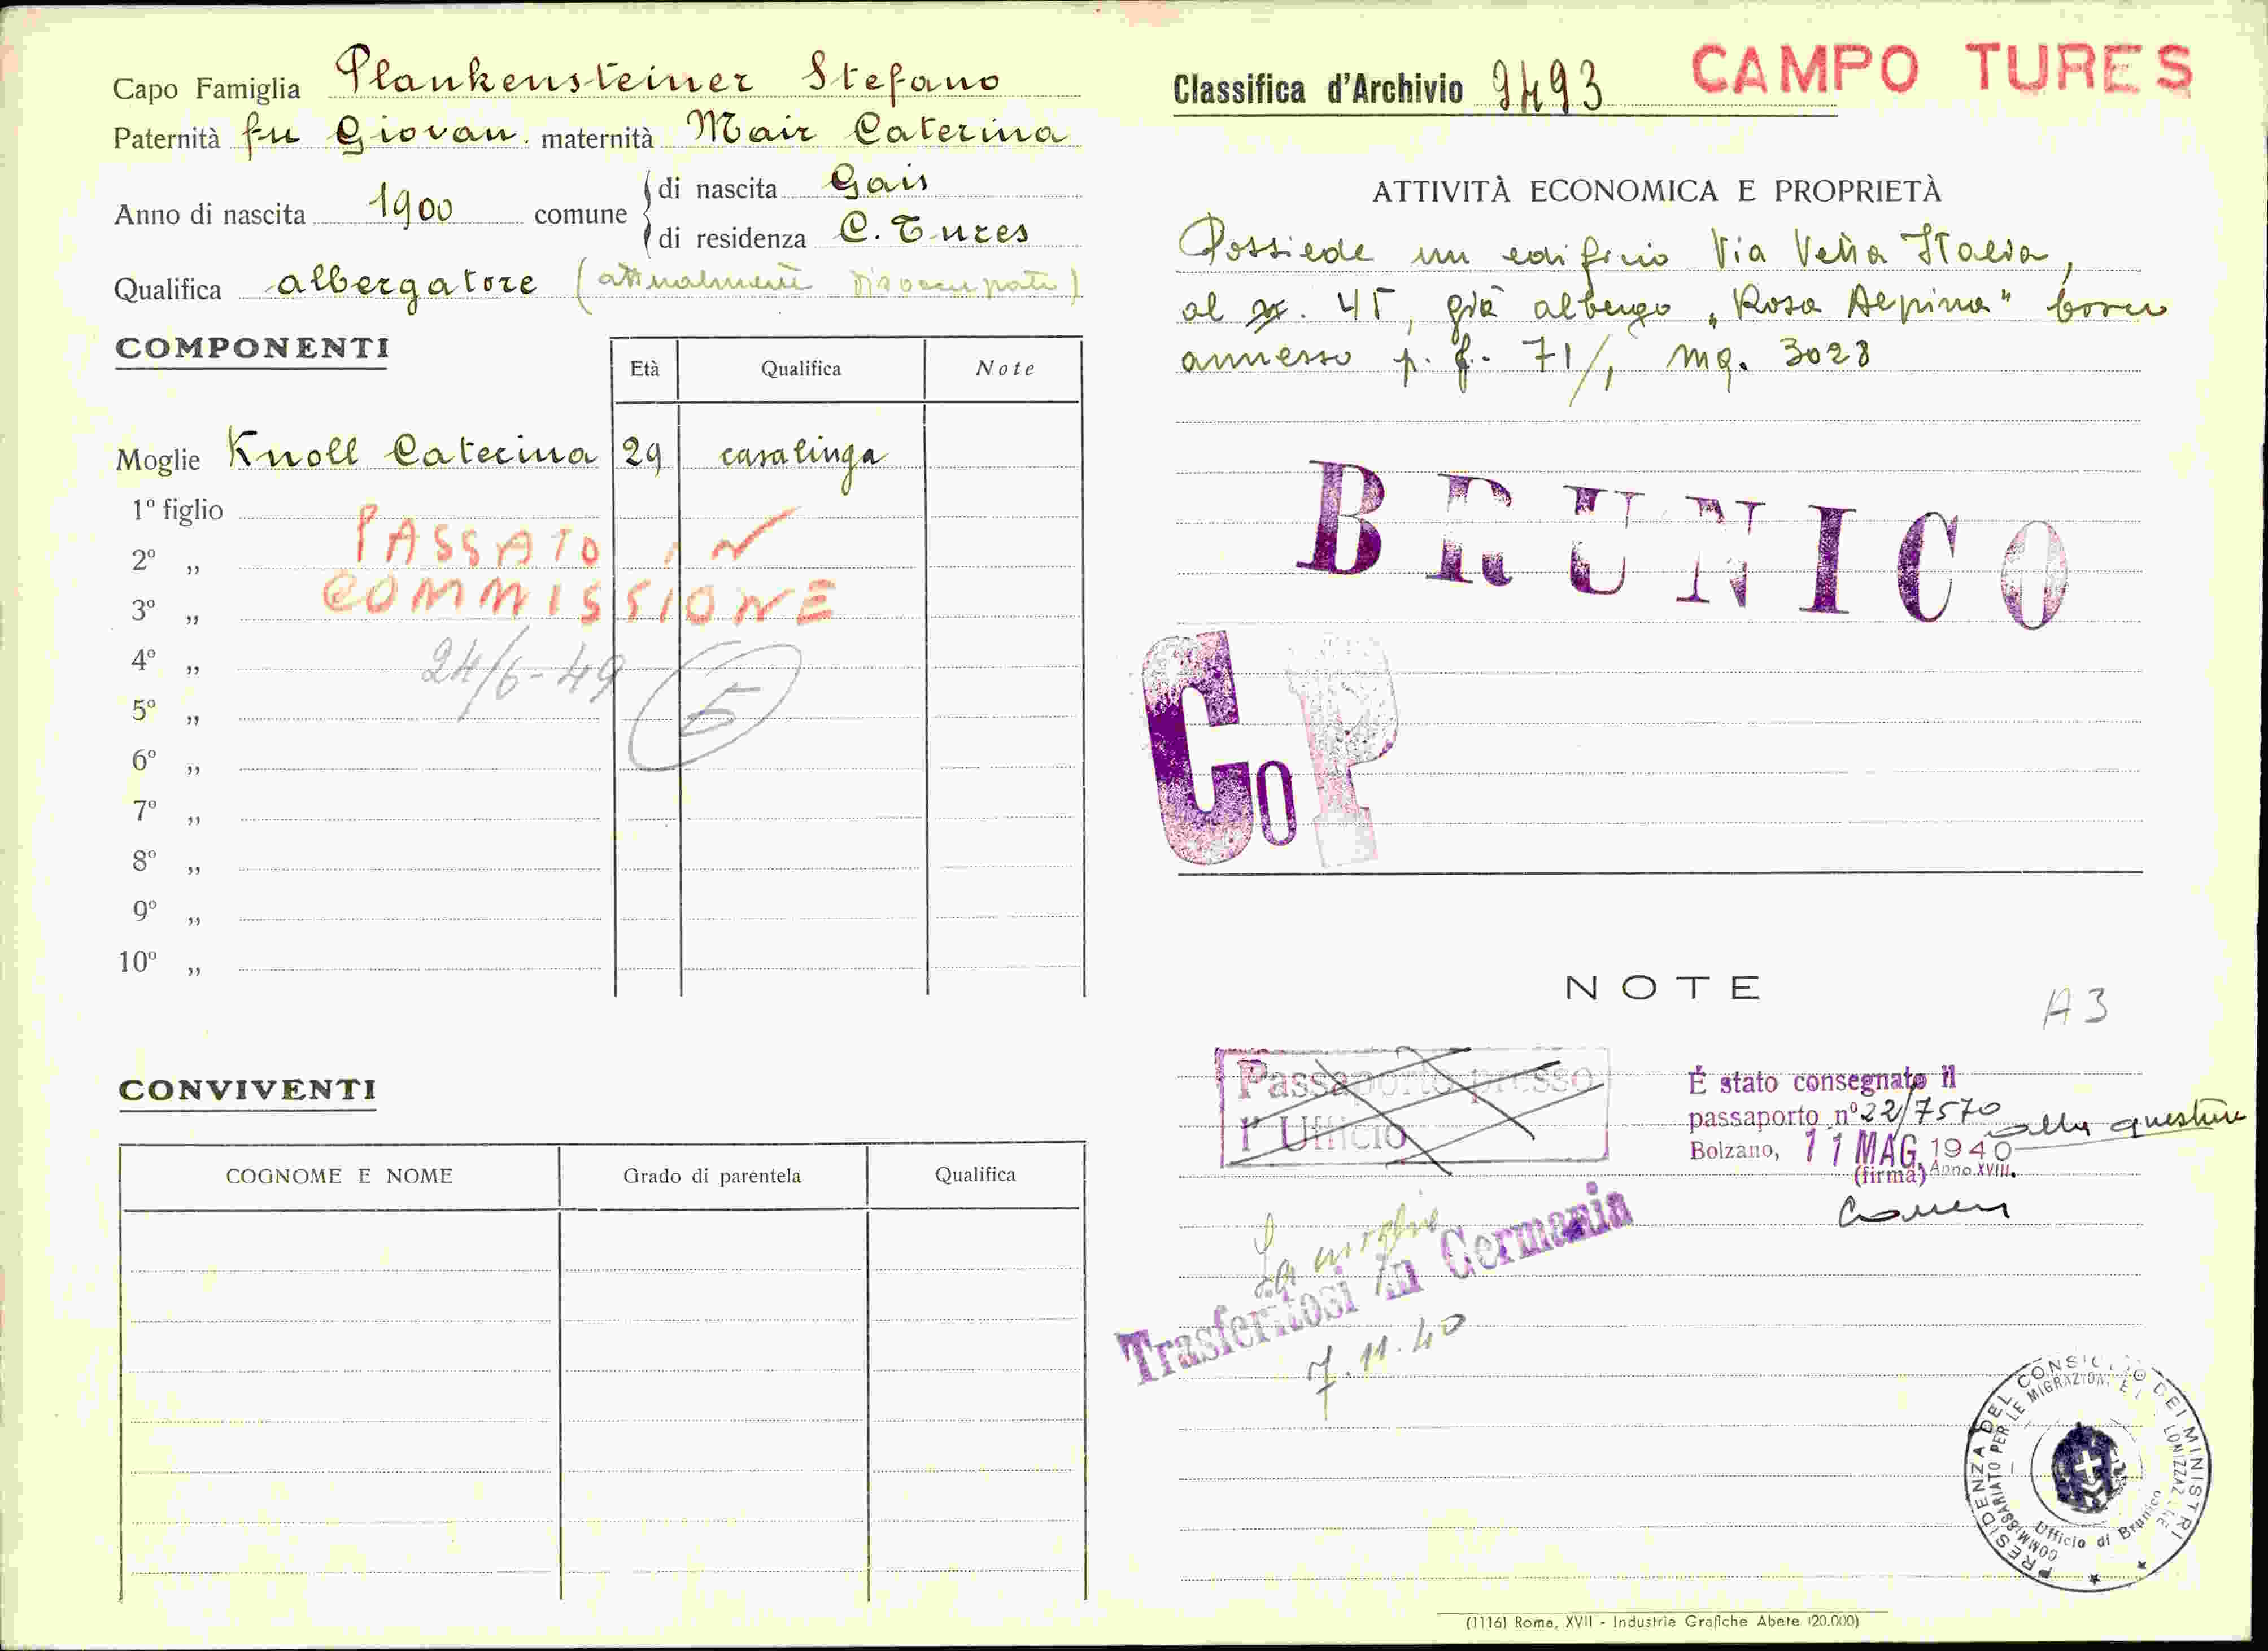 Capo Famiglia Plankensteiner Stefano
Paternità fu Giovan. maternità Mair Caterina
Anno di nascita 1900 comune di nascita Gais
di residenza C. Tures
Qualifica albergatore (attualmente disoccupato)
COMPONENTI
Età Qualifica Note
Moglie Knoll Caterina 29 casalinga
1º figlio
PASSATO IN
2º „
COMMISSIONE
3º „
24/6-49
4º „
5
5º „
6º „
7º „
8º „
9º „
10º „
CONVIVENTI
COGNOME E NOME Grado di parentela Qualifica
Classifica d'Archivio 9493 CAMPO TURES
ATTIVITÀ ECONOMICA E PROPRIETÀ
Possiede un edificio Via Italia,
al 45, già albergo „Rosa Alpina"
annesso p. f. 71/1 mq. 3028
BRUNICO
CoP
NOTE
A3
Passaporto presso
l'Ufficio
È stato consegnato il
passaporto nº 22/7570 alla questura
Bolzano, 11 MAG. 1940 Anno XVIII.
(firma)
La moglie
Trasferitosi in Germania
7.11.40
PRESIDENZA DEL CONSIGLIO DEI MINISTRI
COMMISSARIATO PER LE MIGRAZIONI E LA COLONIZZAZIONE
Ufficio di Brunico
(1116) Roma, XVII - Industrie Grafiche Abete (20.000)